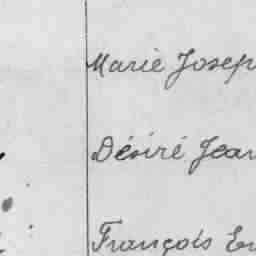 Marie Josep
Désiré Jean
François En